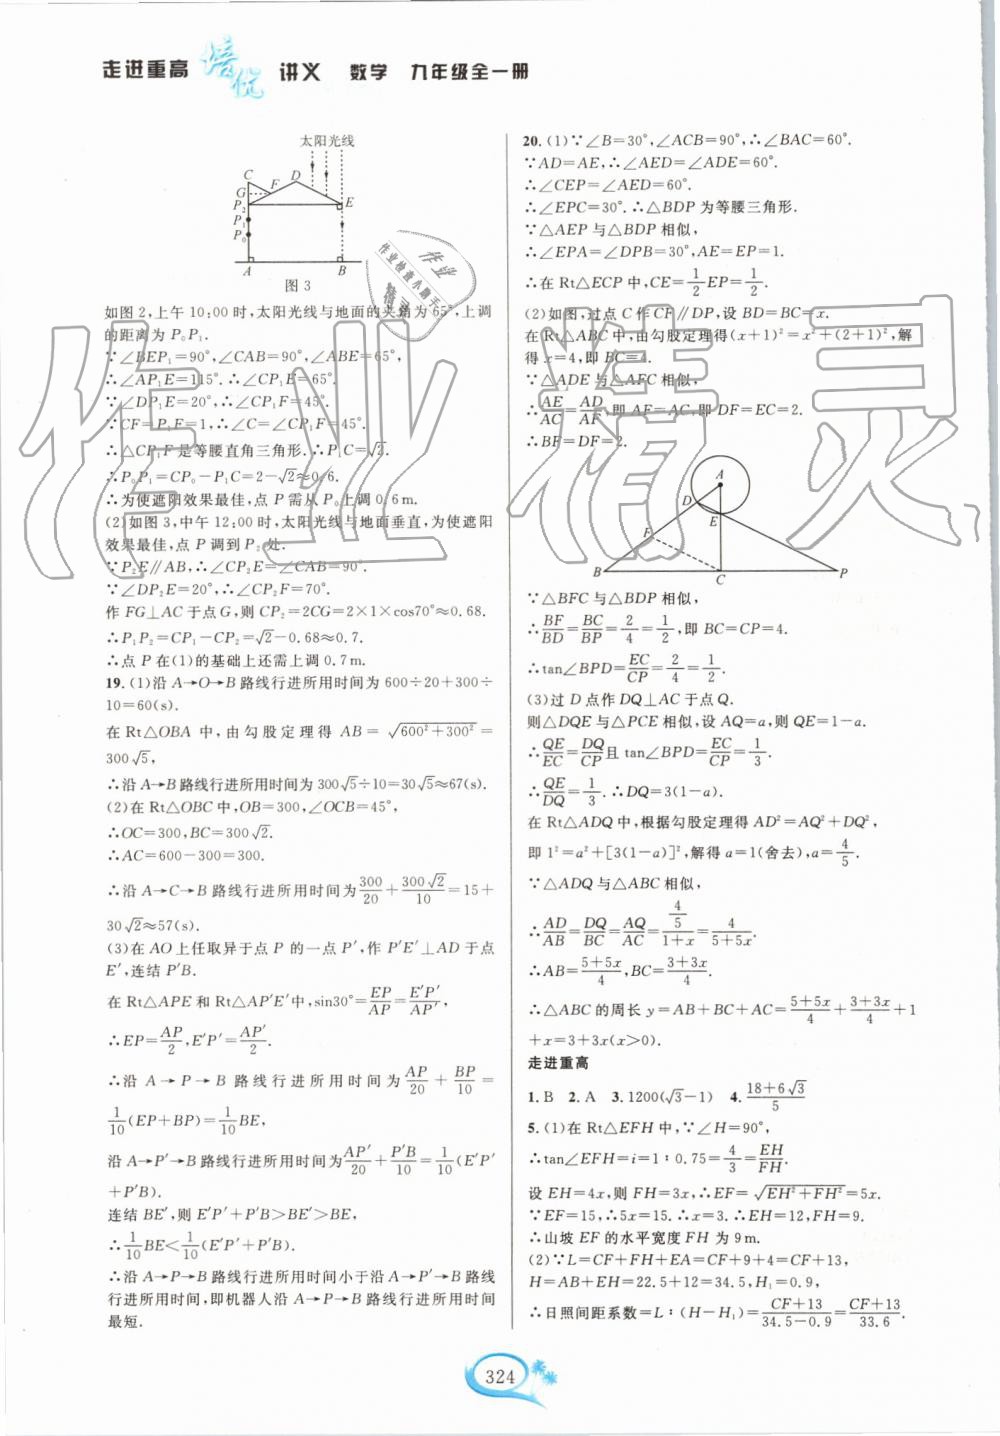 走进重高 培优 讲义 数学 九年级全一册
太阳光线
C D
G F
P₂ E
P₁
P₀
A B
图 3
如图 2,上午 10:00 时,太阳光线与地面的夹角为 65°,上调
的距离为 P₀P₁.
∵∠BEP₁=90°,∠CAB=90°,∠ABE=65°,
∴∠AP₁E=115°.∴∠CP₁E=65°.
∵∠DP₁E=20°,∴∠CP₁F=45°.
∵CF=P₁F=1,∴∠C=∠CP₁F=45°.
∴△CP₁F是等腰直角三角形.∴P₁C=√2.
∴P₀P₁=CP₀-P₁C=2-√2≈0.6.
∴为使遮阳效果最佳,点 P 需从 P₀ 上调 0.6m.
(2)如图 3,中午 12:00 时,太阳光线与地面垂直,为使遮阳
效果最佳,点 P 调到 P₂ 处.
∵P₂E∥AB,∴∠CP₂E=∠CAB=90°.
∵∠DP₂E=20°,∴∠CP₂F=70°.
作 FG⊥AC 于点 G,则 CP₂=2CG=2×1×cos70°≈0.68.
∴P₁P₂=CP₁-CP₂=√2-0.68≈0.7.
∴点 P 在(1)的基础上还需上调 0.7m.
19. (1)沿 A→O→B 路线行进所用时间为 600÷20+300÷
10=60(s).
在 Rt△OBA 中,由勾股定理得 AB=√(600²+300²)=
300√5,
∴沿 A→B 路线行进所用时间为 300√5÷10=30√5≈67(s).
(2)在 Rt△OBC 中,OB=300,∠OCB=45°,
∴OC=300,BC=300√2.
∴AC=600-300=300.
∴沿 A→C→B 路线行进所用时间为300/20+300√2/10=15+
30√2≈57(s).
(3)在 AO 上任取异于点 P 的一点 P′,作 P′E′⊥AD 于点
E′,连结 P′B.
在 Rt△APE 和 Rt△AP′E′中,sin30°=EP/AP=E′P′/AP′,
∴EP=AP/2,E′P′=AP′/2.
∴沿 A→P→B 路线行进所用时间为 AP/20+BP/10=
1/10(EP+BP)=1/10BE,
沿 A→P′→B 路线行进所用时间为AP′/20+P′B/10=1/10(E′P′
+P′B).
连结 BE′,则 E′P′+P′B>BE′>BE,
∴1/10BE<1/10(E′P′+P′B).
∴沿 A→P→B 路线行进所用时间小于沿 A→P′→B 路线
行进所用时间,即机器人沿 A→P→B 路线行进所用时间
最短.
20. (1)∵∠B=30°,∠ACB=90°,∴∠BAC=60°.
∵AD=AE,∴∠AED=∠ADE=60°.
∴∠CEP=∠AED=60°.
∴∠EPC=30°.∴△BDP 为等腰三角形.
∵△AEP 与△BDP 相似,
∴∠EPA=∠DPB=30°,AE=EP=1.
∴在 Rt△ECP 中,CE=1/2EP=1/2.
(2)如图,过点 C 作 CF∥DP,设 BD=BC=x.
在 Rt△ABC 中,由勾股定理得(x+1)²=x²+(2+1)²,解
得 x=4,即 BC=4.
∵△ADE 与△AFC 相似,
∴AE/AC=AD/AF,即 AF=AC,即 DF=EC=2.
∴BF=DF=2.
A
D
E
F
B C P
∵△BFC 与△BDP 相似,
∴BF/BD=BC/BP=2/4=1/2,即 BC=CP=4.
∴tan∠BPD=EC/CP=2/4=1/2.
(3)过 D 点作 DQ⊥AC 于点 Q.
则△DQE 与△PCE 相似,设 AQ=a,则 QE=1-a.
∴QE/EC=DQ/CP且 tan∠BPD=EC/CP=1/3.
∴QE/DQ=1/3.∴DQ=3(1-a).
在 Rt△ADQ 中,根据勾股定理得 AD²=AQ²+DQ²,
即 1²=a²+[3(1-a)]²,解得 a=1(舍去),a=4/5.
∵△ADQ 与△ABC 相似,
∴AD/AB=DQ/BC=AQ/AC=(4/5)/(1+x)=4/(5+5x).
∴AB=(5+5x)/4,BC=(3+3x)/4.
∴△ABC 的周长 y=AB+BC+AC=(5+5x)/4+(3+3x)/4+1
+x=3+3x(x>0).
走进重高
1. B 2. A 3. 1200(√3-1) 4. (18+6√3)/5
5. (1)在 Rt△EFH 中,∵∠H=90°,
∴tan∠EFH=i=1:0.75=4/3=EH/FH.
设 EH=4x,则 FH=3x,∴EF=√(EH²+FH²)=5x.
∵EF=15,∴5x=15.∴x=3.∴EH=12,FH=9.
∴山坡 EF 的水平宽度 FH 为 9m.
(2)∵L=CF+FH+EA=CF+9+4=CF+13,
H=AB+EH=22.5+12=34.5,H₁=0.9,
∴日照间距系数=L:(H-H₁)=(CF+13)/(34.5-0.9)=(CF+13)/33.6.
324
作业精灵
作业
作业检查小助手